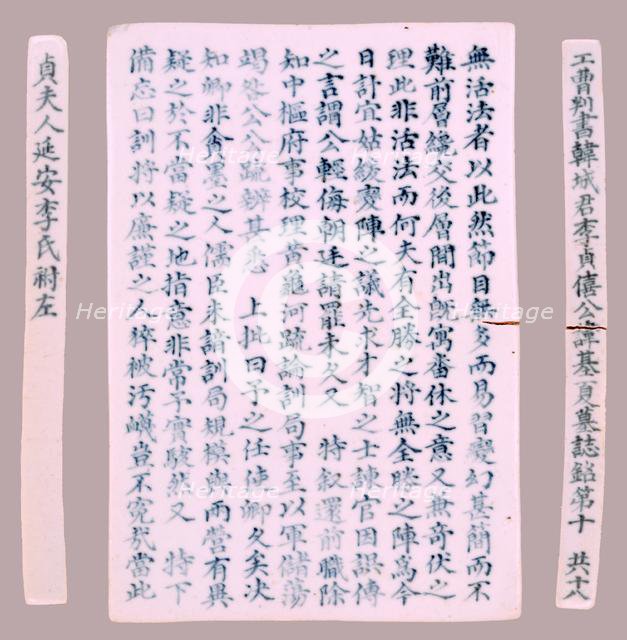 工曹判書韓城君李貞僖公諱基夏墓誌銘第十 共十八
無活法者以此然節目無多而易習變幻甚簡而不
難前層纔交後層間出旣寓番休之意又無奇伏之
理此非活法而何夫有全勝之將無全勝之陣爲今
日計宜姑緩變陣之議先求才智之士諫官因誤傳
之言謂公輕侮朝廷請罷未久又 特叙還前職除
知中樞府事校理黃龜河疏論訓局事至以軍儲蕩
竭咎公公疏辨甚悉 上批曰予之任使卿久矣決
知卿非貪墨之人儒臣未諳訓局規模與兩營有異
疑之於不當疑之地指意非常予實駭然又 特下
備忘曰訓將以廉謹之人猝被汚衊豈不寃哉當此
貞夫人延安李氏祔左
Heritage
Heritage
Heritage
Heritage
Heritage
Heritage
Heritage